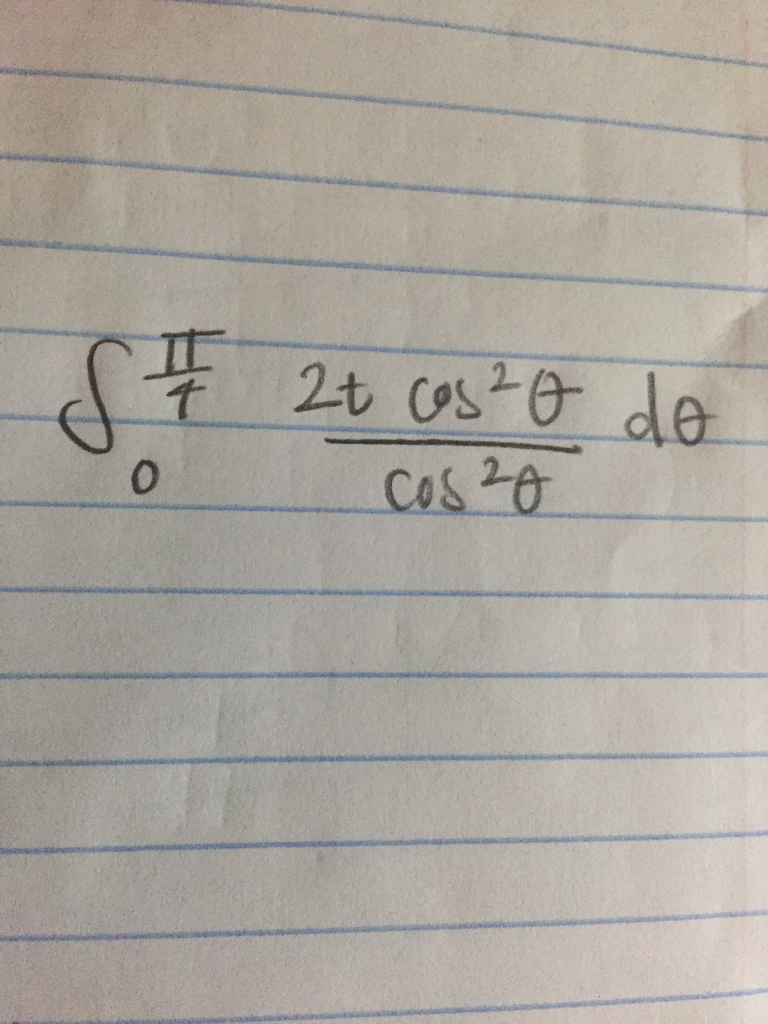 ∫₀^(π/4) (2t cos²θ)/(cos²θ) dθ